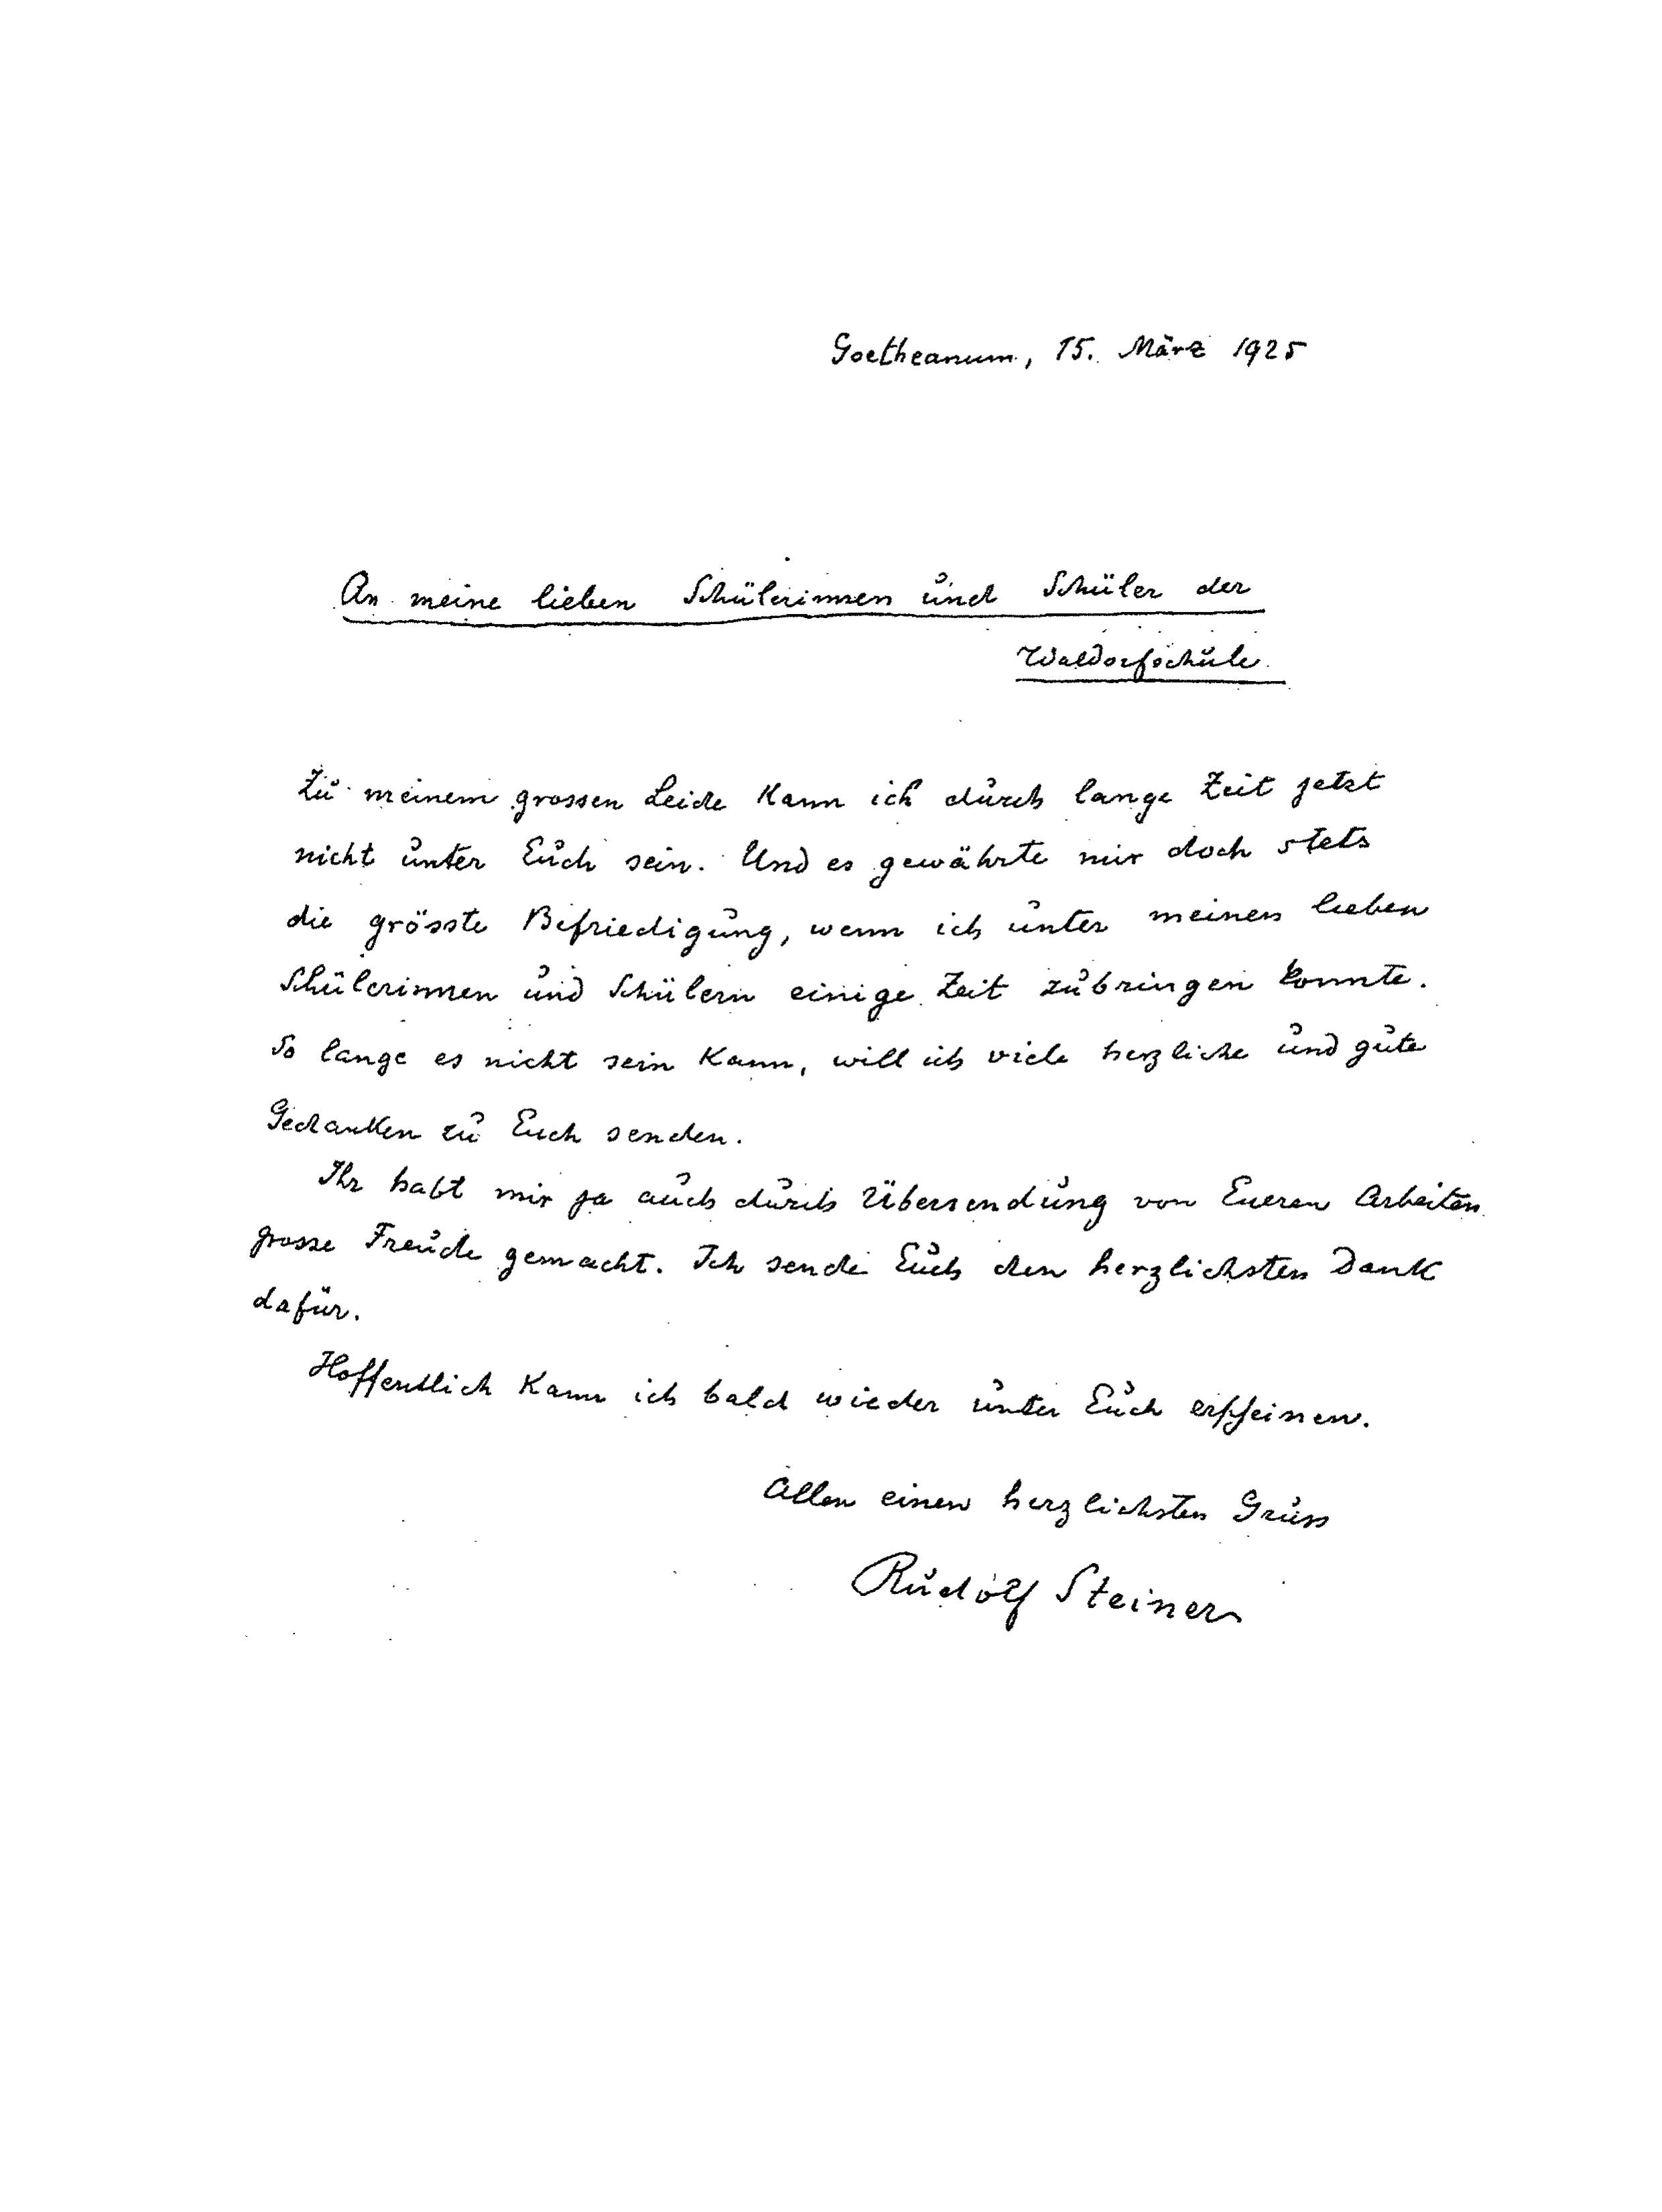 Goetheanum, 15. März 1925
An meine lieben Schülerinnen und Schüler der
Waldorfschule.
Zu meinem grossen Leide kann ich durch lange Zeit jetzt
nicht unter Euch sein. Und es gewährte mir doch stets
die grösste Befriedigung, wenn ich unter meinen lieben
Schülerinnen und Schülern einige Zeit zubringen konnte.
So lange es nicht sein kann, will ich viele herzliche und gute
Gedanken zu Euch senden.
Ihr habt mir ja auch durch Übersendung von Eueren Arbeiten
grosse Freude gemacht. Ich sende Euch den herzlichsten Dank
dafür.
Hoffentlich kann ich bald wieder unter Euch erscheinen.
Allen einen herzlichsten Gruss
Rudolf Steiner